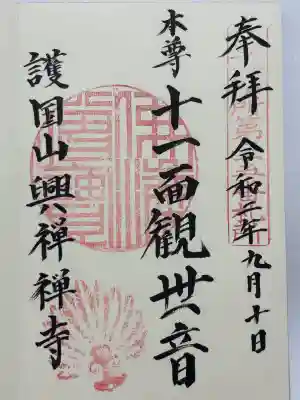 奉拝 令和二年九月十日
本尊 十一面観世音
護国山興禅禅寺